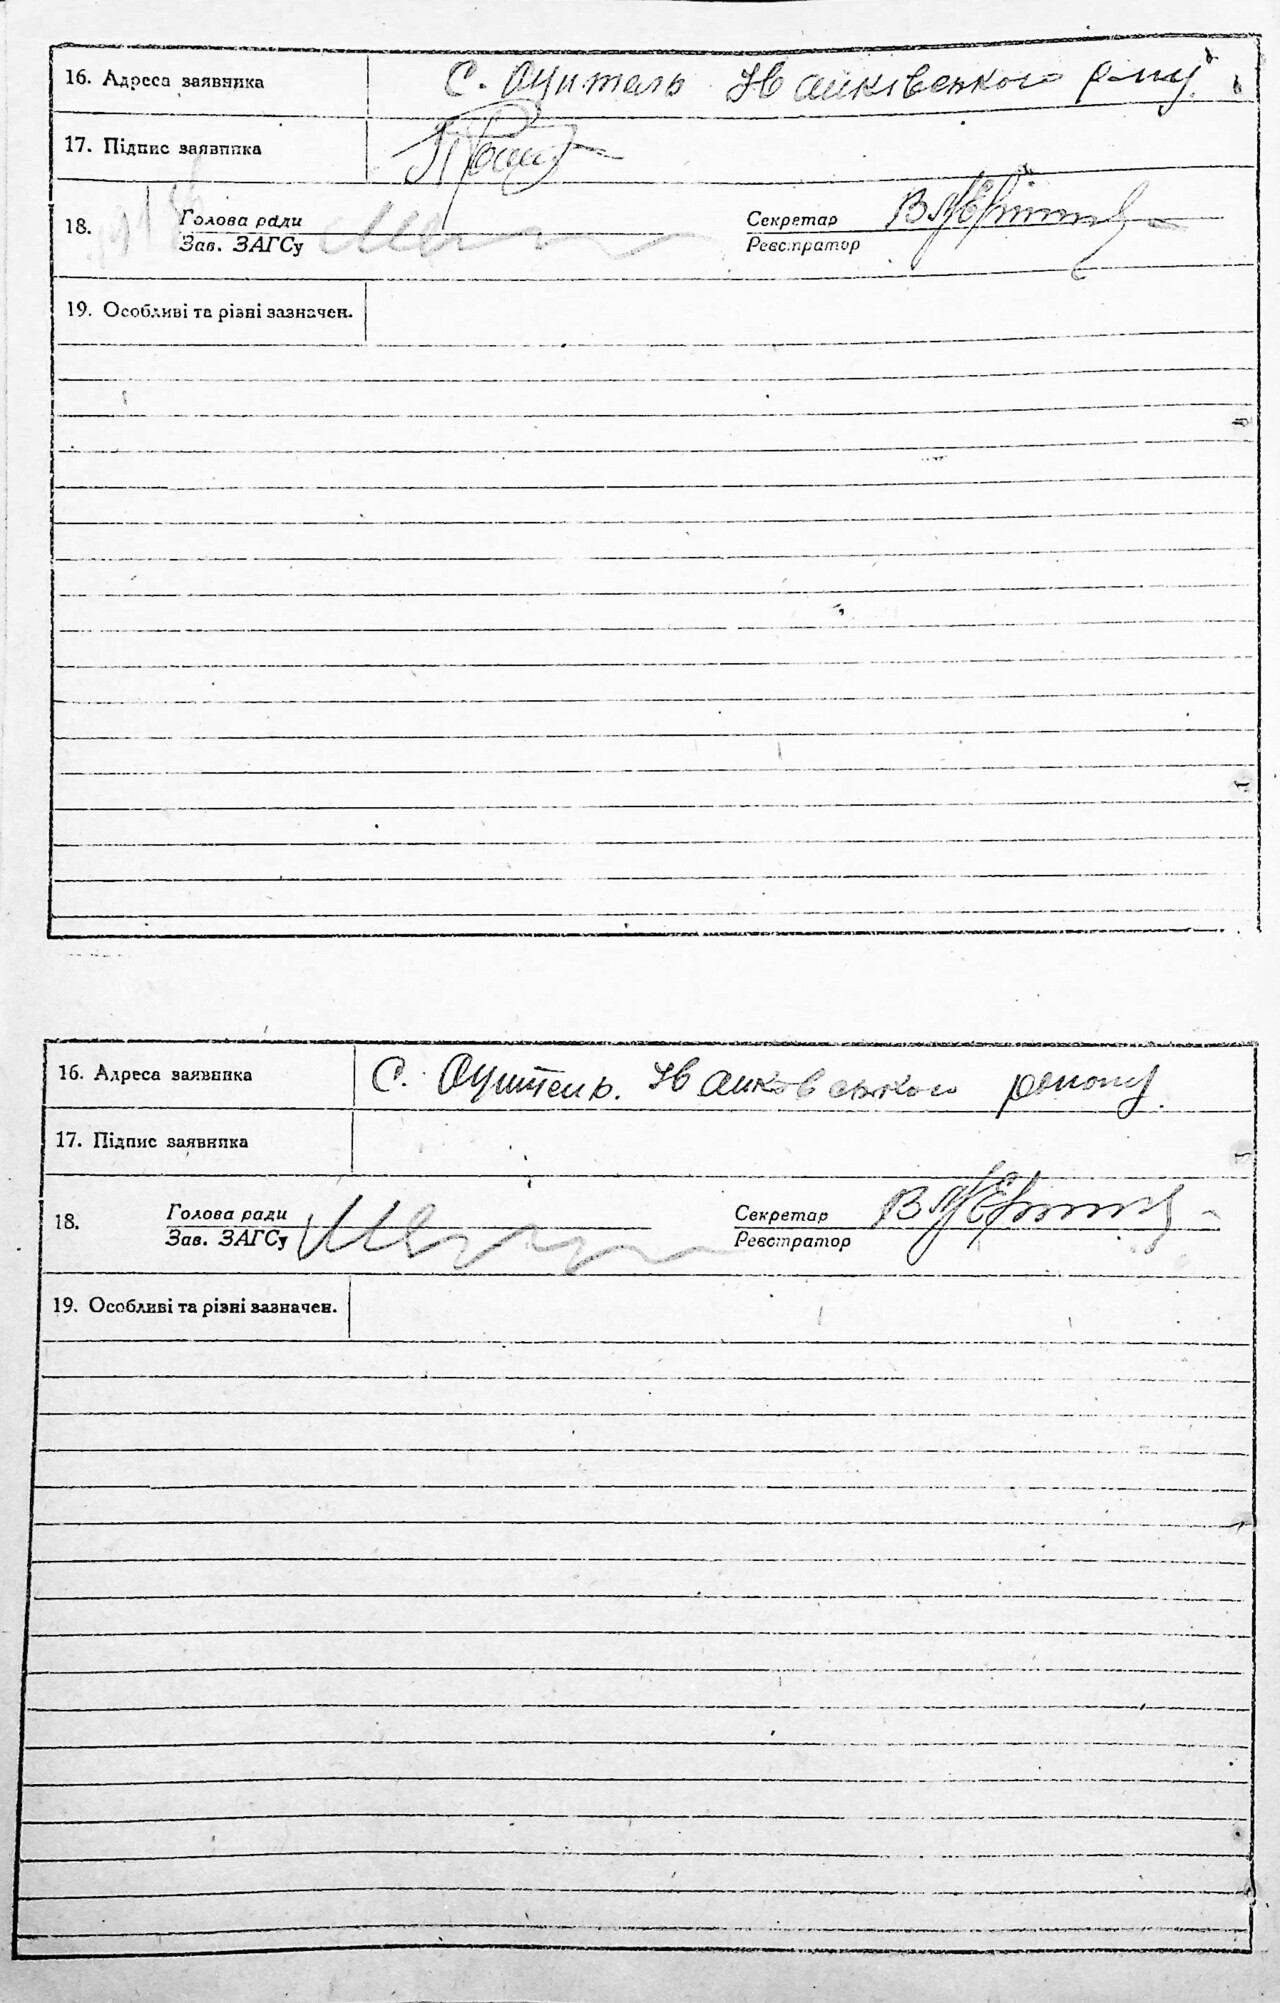 16. Адреса заявника С. Оцитель Іванківського р-ну
17. Підпис заявника
18. Голова ради Секретар
Зав. ЗАГСу Реєстратор
19. Особливі та різні зазначен.
16. Адреса заявника С. Оцитель. Іванковського району.
17. Підпис заявника
18. Голова ради Секретар
Зав. ЗАГСу Реєстратор
19. Особливі та різні зазначен.